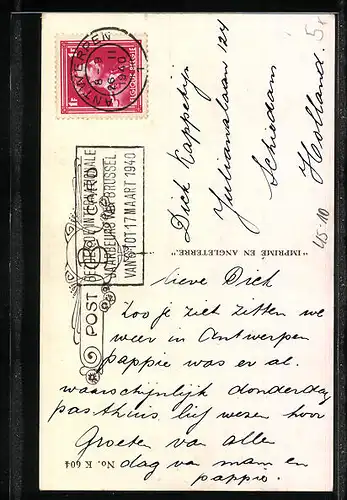 ANTWERPEN
8-9
26 II
1940
1F 1F
BELGIQUE-BELGIË
5x
POST CARD
BEZOEKT DE INTERNATIONALE
JAARBEURS VAN BRUSSEL
VAN 3 TOT 17 MAART 1940
Dick Kappetijn
Julianalaan 124
Schiedam
Holland.
45-10
"IMPRIME EN ANGLETERRE."
No. K 604
Lieve Dick
Zoo je ziet zitten we
weer in Antwerpen
pappie was er al.
waarschijnlijk donderdag
pas thuis lijf wezen hoor
Groeten van allen
dag van mam en
pappie.